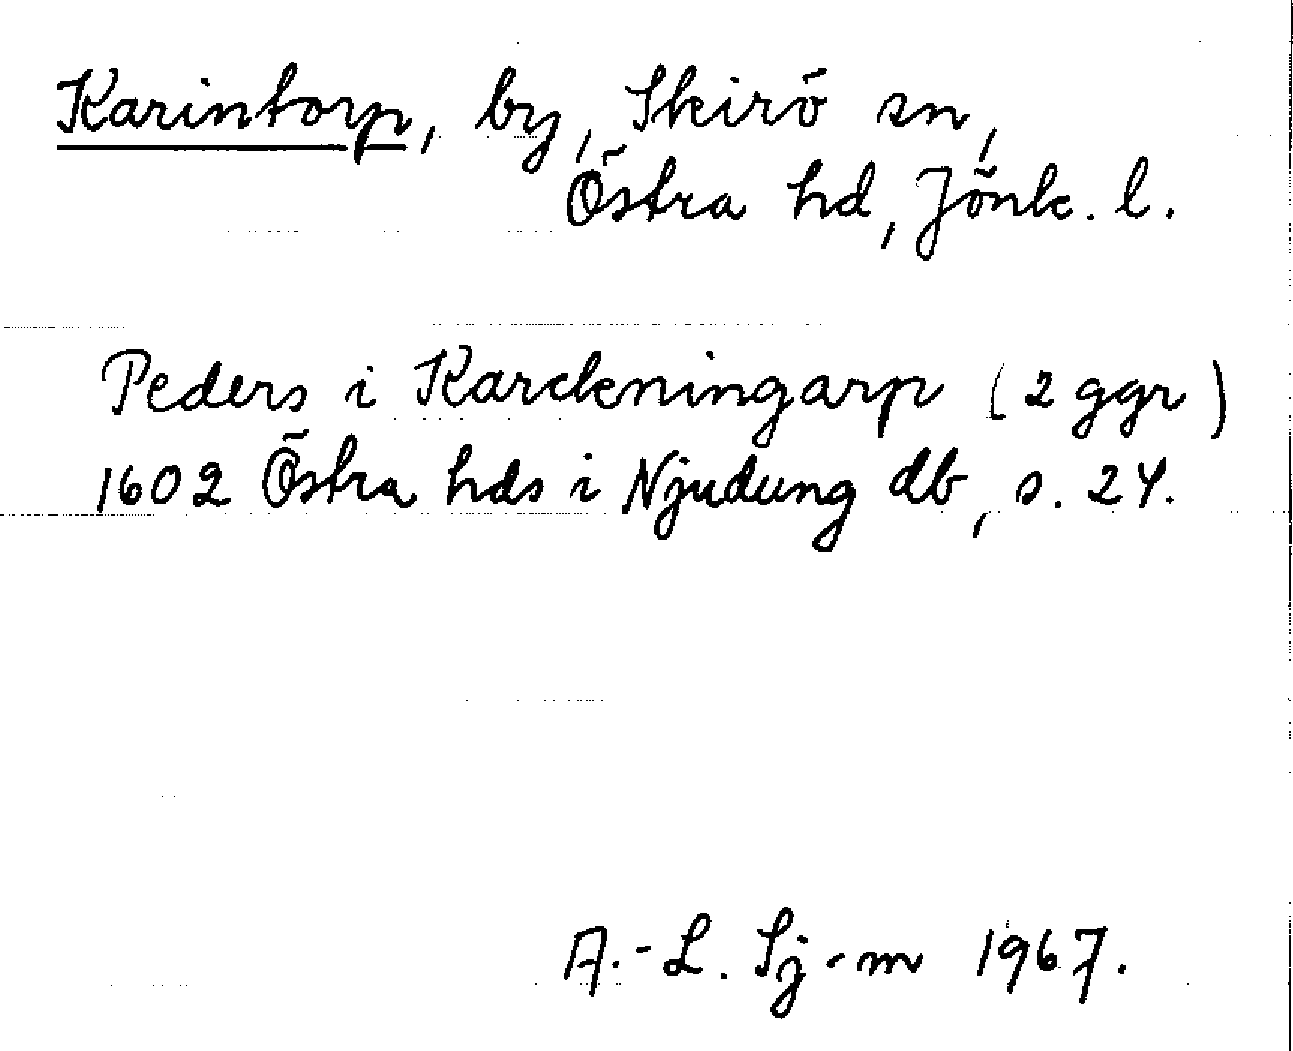 Karintorp, by, Skirö sn,
Östra hd, Jönk. l.
Peders i Karckningarp (2 ggr)
1602 Östra hds i Njudung db, s. 24.
A.-L. Sj-m 1967.